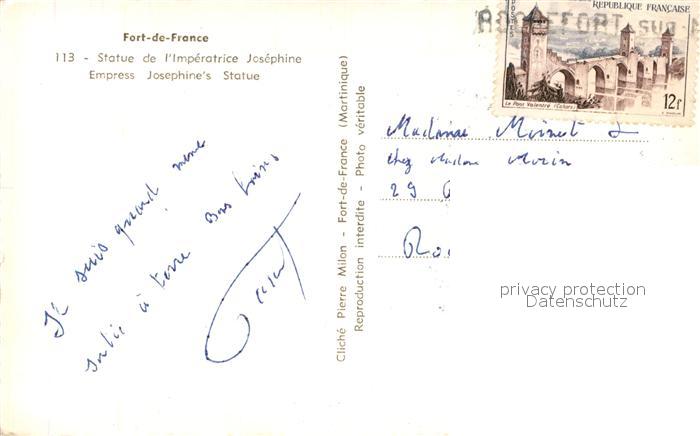 Fort-de-France
113 - Statue de l'Impératrice Joséphine
Empress Josephine's Statue
Je suis quand même
sortie à terre Bons
Cliché Pierre Milon - Fort-de-France (Martinique)
Reproduction interdite - Photo véritable
POSTES
REPUBLIQUE FRANÇAISE
Le Pont Valentré (Cahors)
12F
Madame Moinet
chez Madame Morin
29
Ro
privacy protection
Datenschutz